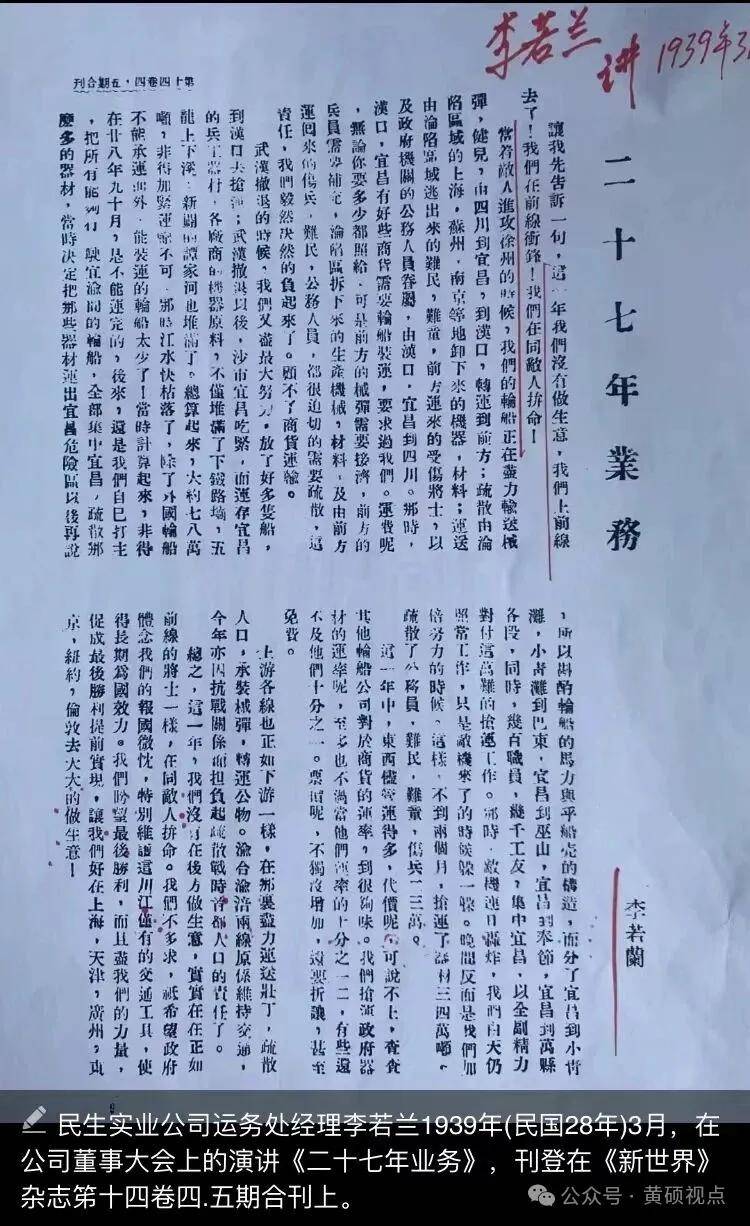 李若兰
讲 1939年3
第十四卷四，五期合刊
二十七年業務
李若蘭
讓我先告訴一句，這一年我們沒有做生意，我們上前線
去了！我們在前線衝鋒！我們在同敵人拚命！
當着敵人進攻徐州的時候，我們的輪船正在盡力輸送械
彈，健兒，由四川到宜昌，到漢口，轉運到前方；疏散由淪
陷區域的上海，蘇州，南京等地卸下來的機器，材料；運送
由淪陷區域逃出來的難民，難童，前方運來的受傷將士，以
及政府機關的公務人員眷屬，由漢口，宜昌到四川。那時，
漢口，宜昌有好些商貨需要輪船裝運，要求過我們。運費呢
，無論你要多少都照給，可是前方的械彈需要接濟，前方的
兵員需要補充，淪陷區拆下來的生產機械，材料，及由前方
運囘來的傷兵，難民，公務人員，都很迫切的需要疏散，這
責任，我們毅然決然的負起來了。顧不了商貨運輸。
武漢撤退的時候，我們又盡最大努力，放了好多隻船，
到漢口去搶運；武漢撤退以後，沙市宜昌吃緊，而運存宜昌
的兵工器材，各廠商的機器原料，不僅堆滿了下鐵路壩，五
龍上下溪，新闢的譚家河也堆滿了。總算起來，大約七八萬
噸，非得加緊運輸不可，那時江水快枯落了，除了外國輪船
不能承運而外，能裝運的輪船太少了！當時計算起來，非得
在廿八年九十月，是不能運完的，後來，還是我們自己打主
，把所有能夠行駛宜渝間的輪船，全部集中宜昌，疏散那
麼多的器材，當時決定把那些器材運出宜昌危險區以後再說
，所以斟酌輪船的馬力與乎船壳的構造，而分了宜昌到小青
灘，小青灘到巴東，宜昌到巫山，宜昌到奉節，宜昌到萬縣
各段，同時，幾百職員，幾千工友，集中宜昌，以全副精力
對付這萬難的搶運工作。那時，敵機連日轟炸，我們白天仍
照常工作，只是敵機來了的時候躱一躱。晚間反而是我們加
倍努力的時候。這樣，不到兩個月，搶運了器材三四萬噸。
疏散了公務員，難民，難童，傷兵二三萬。
這一年中，東西儘管運得多，代價呢，可說不上，查查
其他輪船公司對於商貨的運率，到很夠味。我們搶運政府器
材的運率呢，至多也不過當他們運率的十分之一二，有些還
不及他們十分之一。票價呢，不獨沒增加，還要折讓，甚至
免費。
上游各線也正如下游一樣，在那裏盡力運送壯丁，疏散
人口，承裝械彈，轉運公物。渝合渝涪兩線原係維持交通，
今年亦因抗戰關係而担負起疏散戰時首都人口的責任了。
總之，這一年，我們沒有在後方做生意，實實在在正如
前線的將士一樣，在同敵人拚命。我們不多求，祇希望政府
體念我們的報國微忱，特別維護這川江僅有的交通工具，使
得長期爲國效力。我們盼望最後勝利，而且盡我們的力量，
促成最後勝利提前實現，讓我們好在上海，天津，廣州，東
京，紐約，倫敦去大大的做生意！
民生实业公司运务处经理李若兰1939年(民国28年)3月，在
公司董事大会上的演讲《二十七年业务》，刊登在《新世界》
杂志第十四卷四.五期合刊上。
公众号·黄硕视点